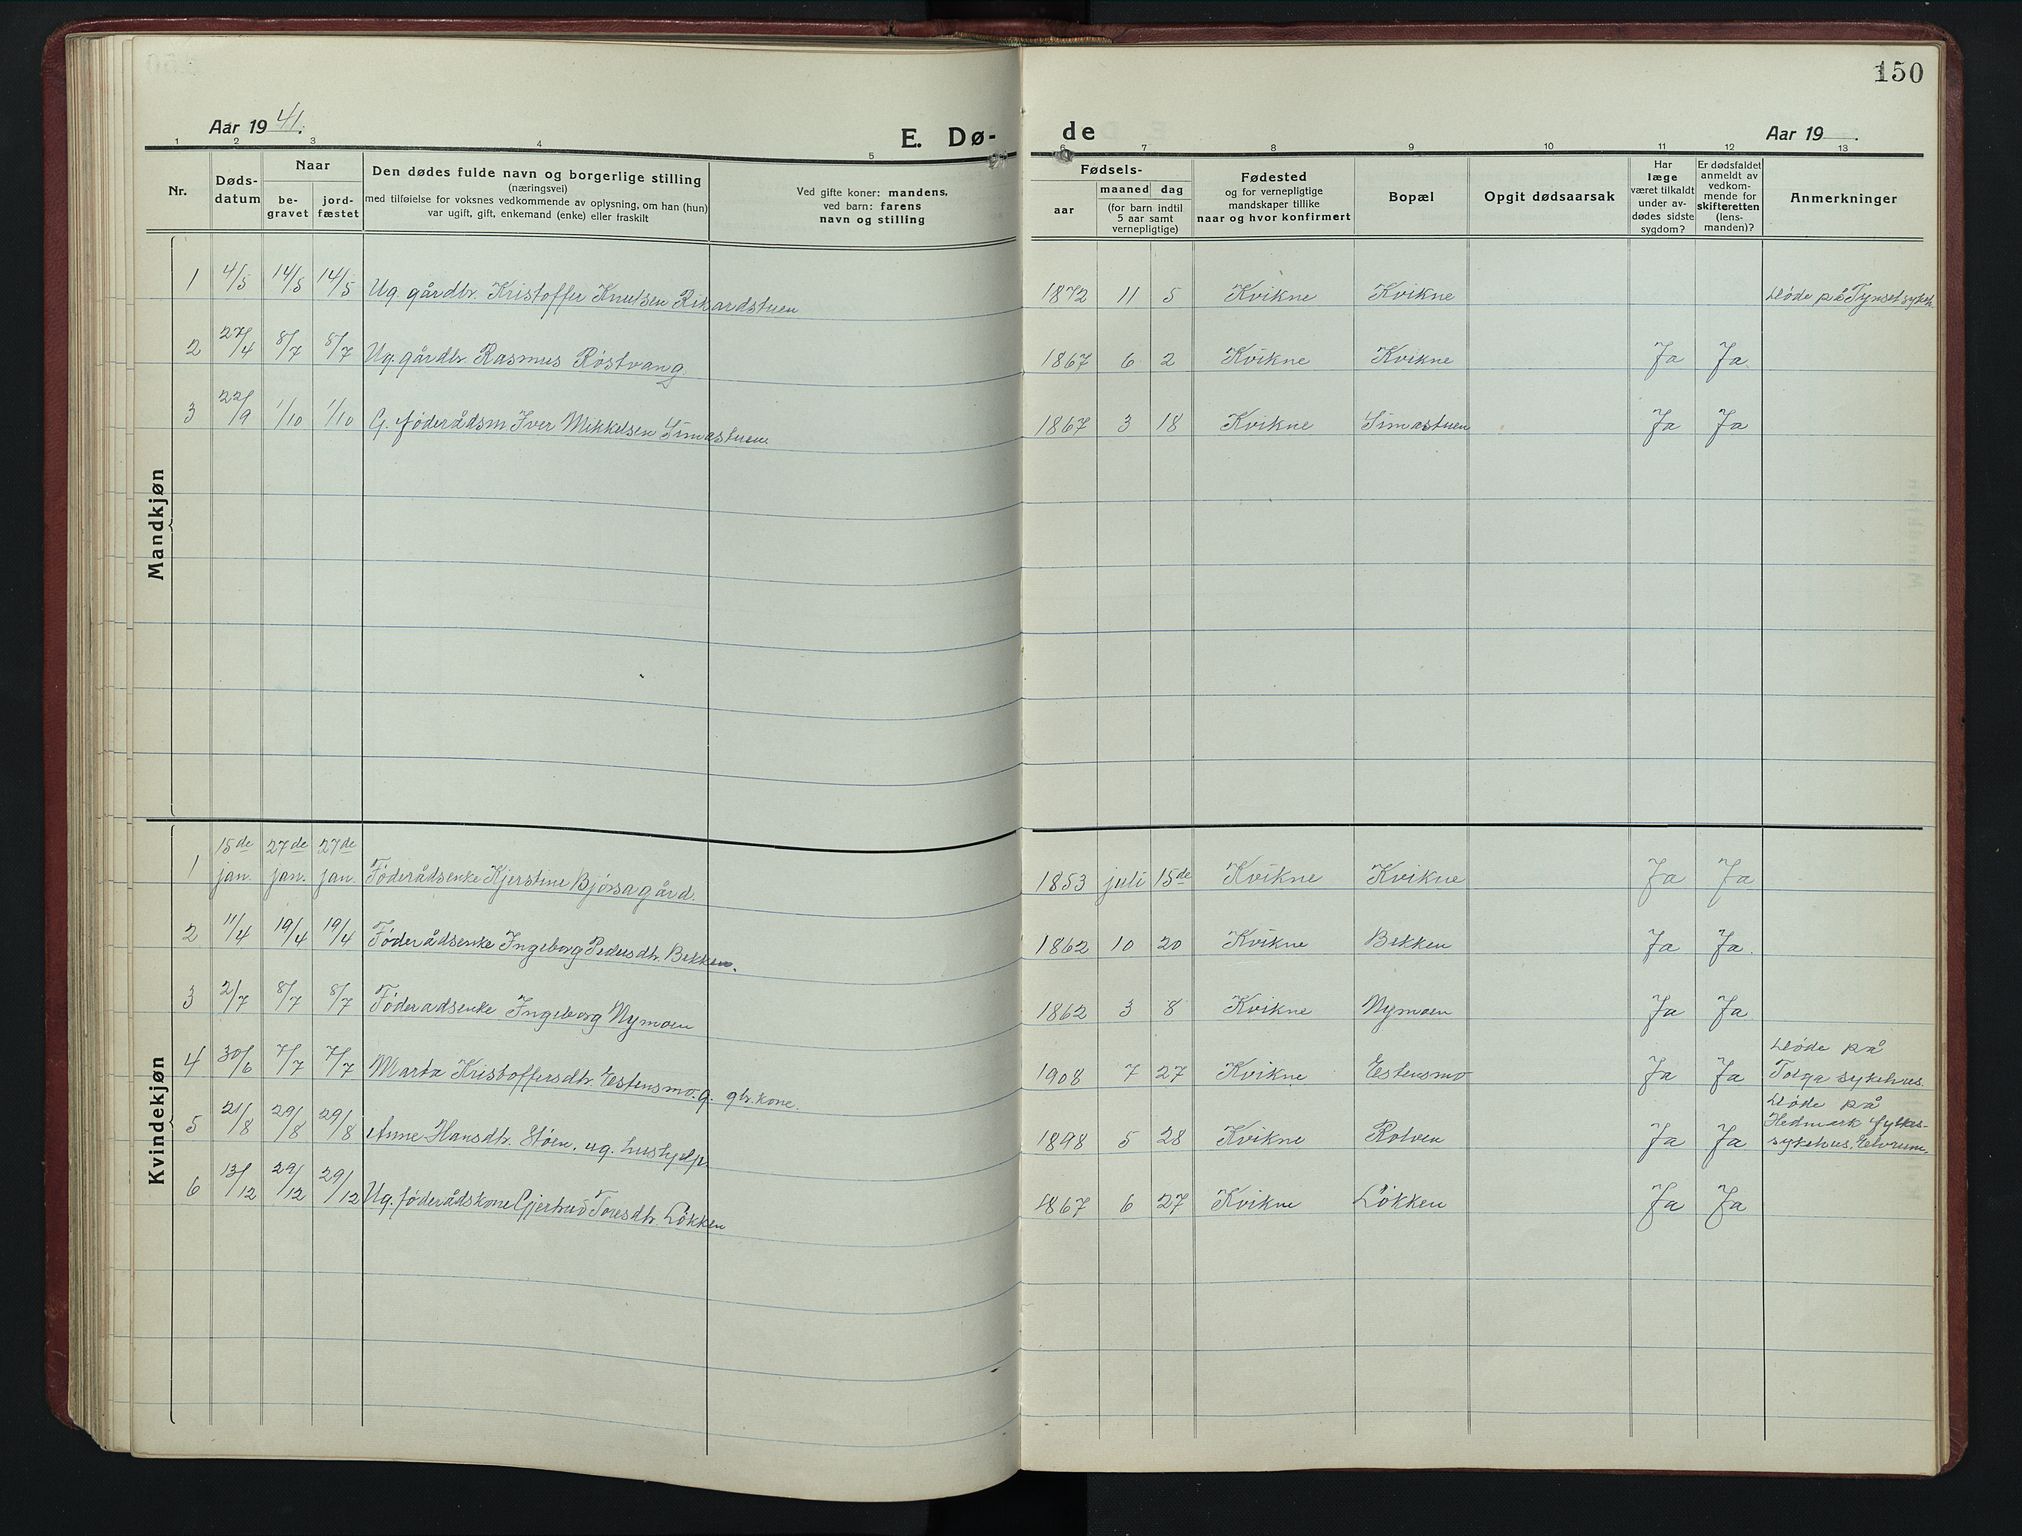 150
Aar 1941.
E. Dø-
de
Aar 19
1 2 3 4 5 6 7 8 9 10 11 12 13
Nr.
Døds-
datum
Naar
be-
gravet
jord-
fæstet
Den dødes fulde navn og borgerlige stilling
(næringsvei)
med tilføielse for voksnes vedkommende av oplysning, om han (hun)
var ugift, gift, enkemand (enke) eller fraskilt
Ved gifte koner: mandens,
ved barn: farens
navn og stilling
Fødsels-
aar
maaned dag
(for barn indtil
5 aar samt
vernepligtige)
Fødested
og for vernepligtige
mandskaper tillike
naar og hvor konfirmert
Bopæl
Opgit dødsaarsak
Har
læge
været tilkaldt
under av-
dødes sidste
sygdom?
Er dødsfaldet
anmeldt av
vedkom-
mende for
skifteretten
(lens-
manden)?
Anmerkninger
Mandkjøn
1 4/5 14/5 14/5 Ug. gårdbr. Kristoffer Knutsen Rikardstuen 1872 11 5 Kvikne Kvikne Døde på Tynset sykeh.
2 27/4 8/7 8/7 Ug. gårdbr. Rasmus Røstvang. 1867 6 2 Kvikne Kvikne Ja Ja
3 22/9 1/10 1/10 G. føderådsm Iver Mikkelsen Simastuen 1867 3 18 Kvikne Simastuen Ja Ja
Kvindekjøn
1 15de jan. 27de jan. 27de jan. Føderådsenke Kjerstine Bjørsagård. 1853 juli 15de Kvikne Kvikne Ja Ja
2 11/4 19/4 19/4 Føderådsenke Ingeborg Pedersdtr. Bekken. 1862 10 20 Kvikne Bekken Ja Ja.
3 2/7 8/7 8/7 Føderadsenke Ingeborg Nymoen 1862 3 8 Kvikne Nymoen Ja Ja
4 30/6 7/7 7/7 Marta Kristoffersdtr. Estensmo. g. gbr. kone. 1908 7 27 Kvikne Estensmo Ja Ja Døde på
Tolga sykehus.
5 21/8 29/8 29/8 Anne Hansdtr. Støen, ug. hushjelp. 1898 5 28 Kvikne Rolven Ja Ja Døde på
Hedmark fylkes-
sykehus, Elverum.
6 13/12 29/12 29/12 Ug. føderådskone Gjertrud Toresdtr. Løkken 1867 6 27 Kvikne Løkken Ja Ja